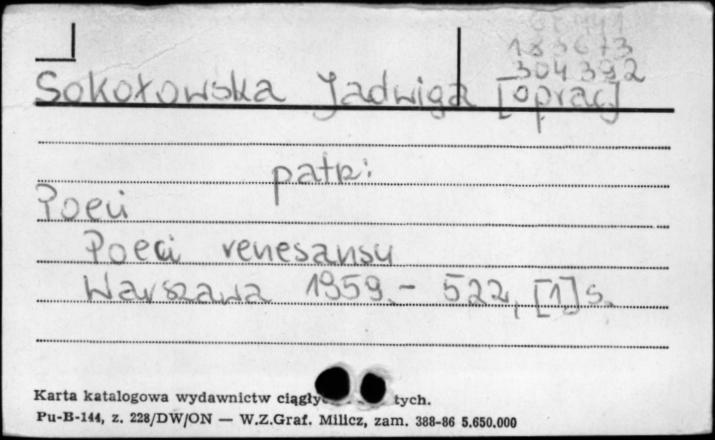 183673
304392
Sokołowska Jadwiga [oprac]
patrz:
Poeci
Poeci renesansu
Warszawa 1959.- 522, [1] s.
Karta katalogowa wydawnictw ciągły tych.
Pu-B-144, z. 228/DW/ON — W.Z.Graf. Milicz, zam. 388-86 5.650.000